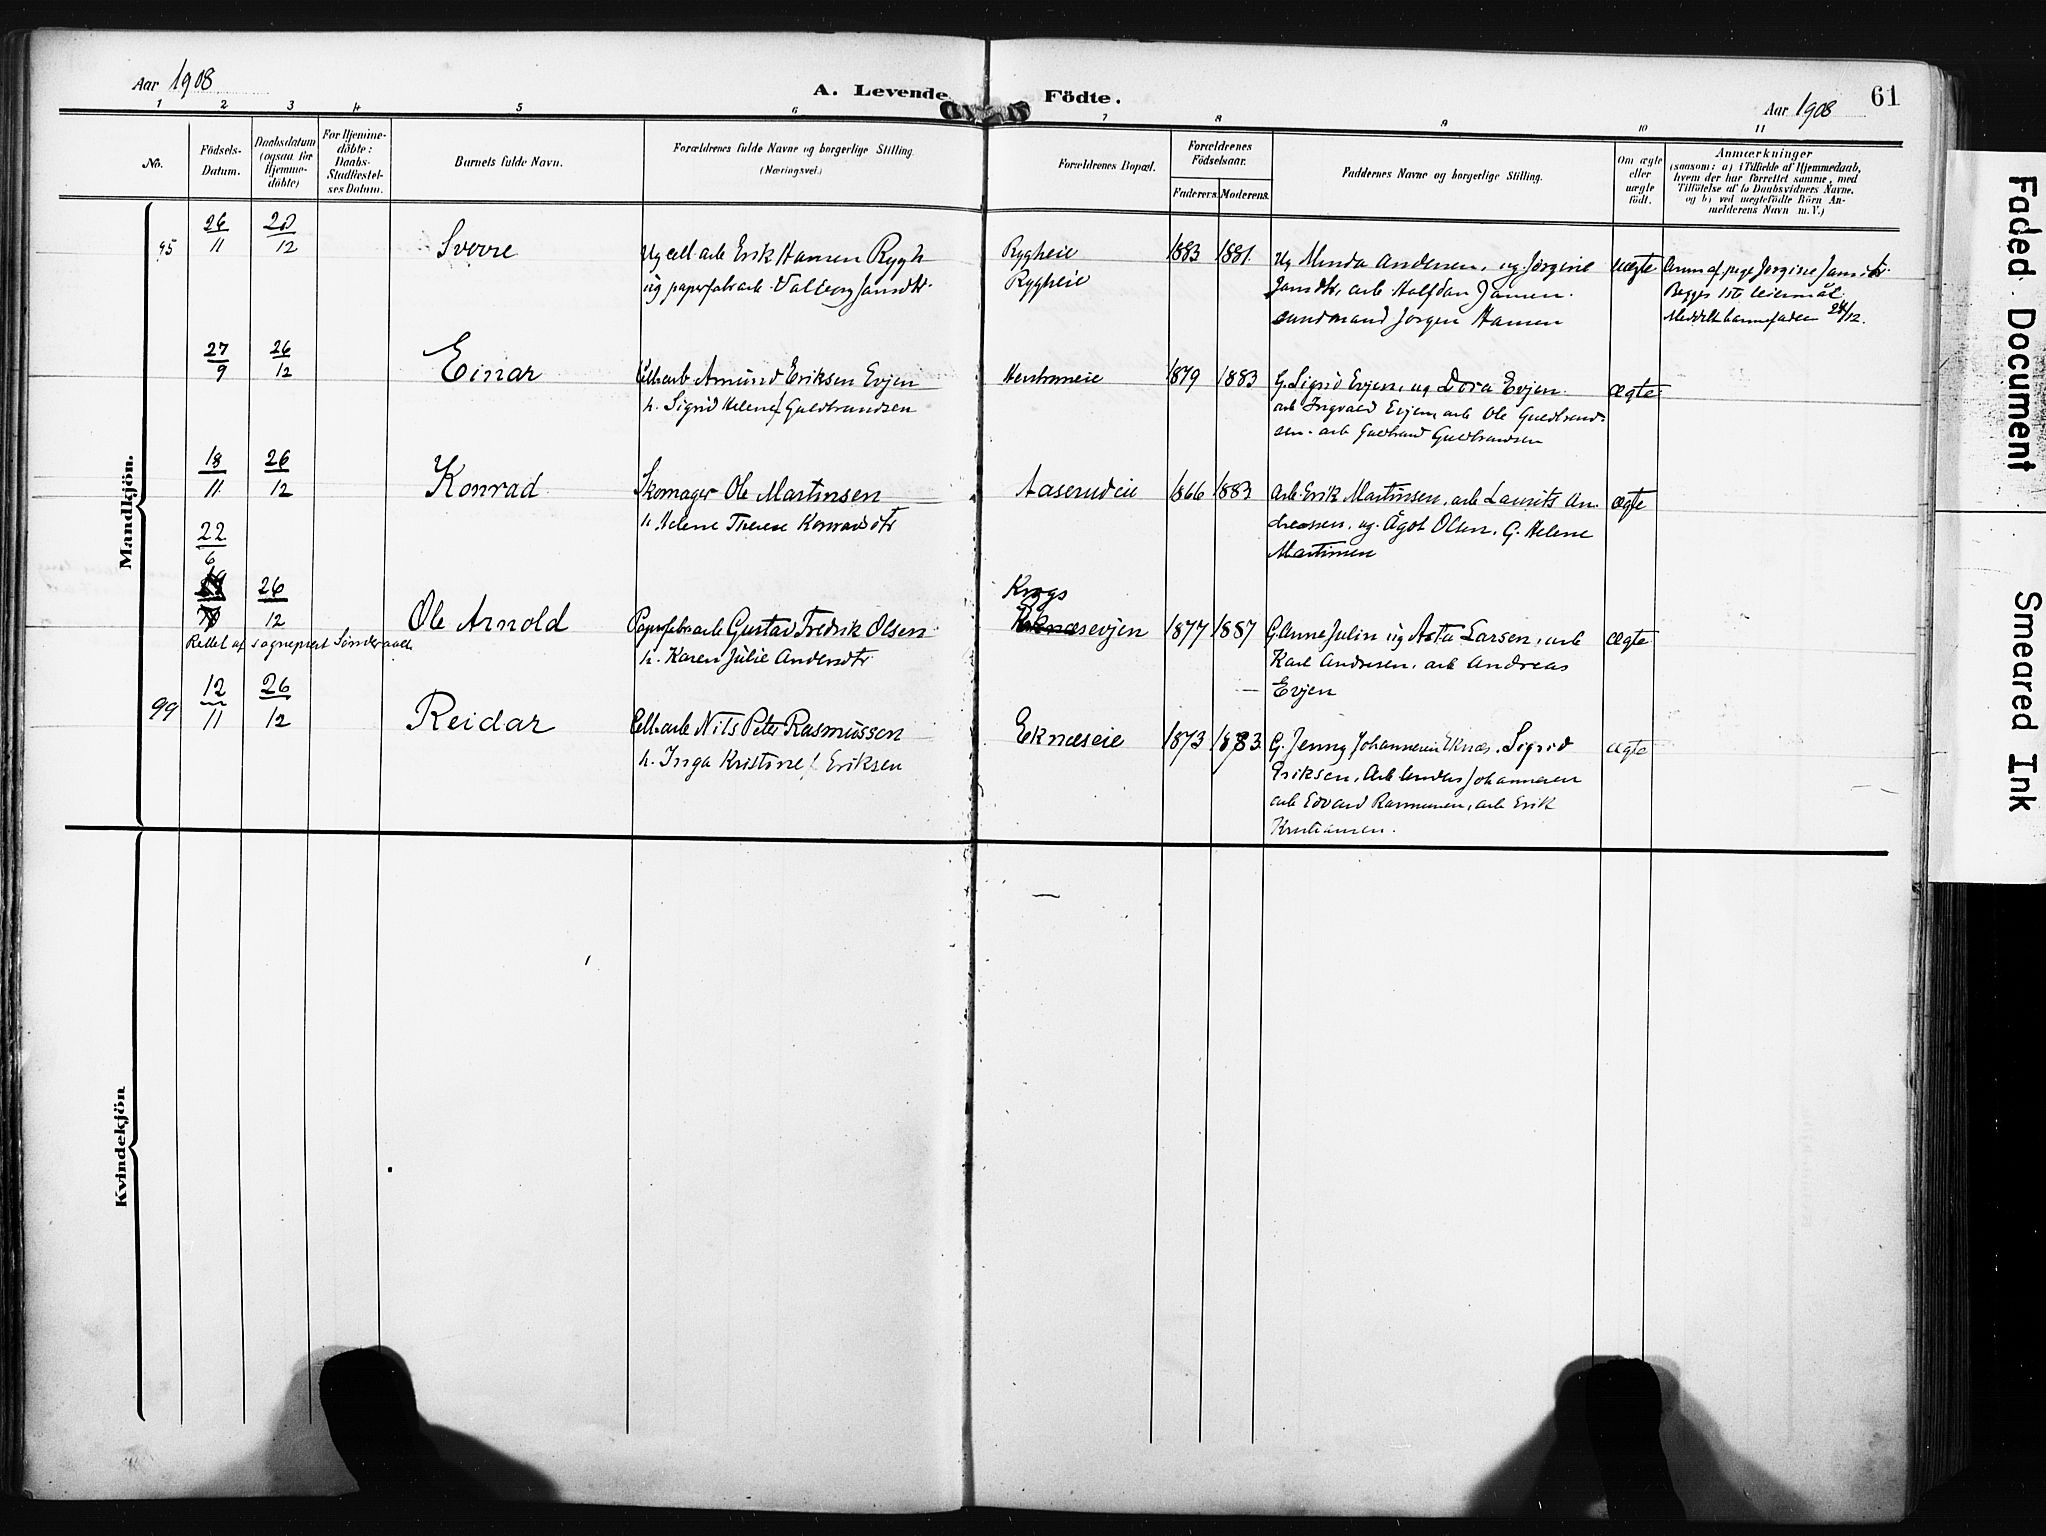 Aar 1908
A. Levende Födte.
Aar 1908
61
1 2 3 4 5 6 7 8 9 10 11
No.
Födsels-
Datum.
Daabsdatum
(ogsaa for
Hjemme-
döbte)
For Hjemme-
döbte:
Daabs-
Stadfæstel-
ses Datum.
Barnets fulde Navn.
Forældrenes fulde Navne og borgerlige Stilling.
(Næringsvei.)
Forældrenes Bopæl.
Forældrenes
Födselsaar.
Faderens. Moderens.
Faddernes Navne og borgerlige Stilling.
Om ægte
eller
uægte
födt.
Anmærkninger
(saasom: a) i Tilfælde af Hjemmedaab,
hvem der har forrettet samme, med
Tilföielse af to Daabsvidners Navne,
og b) ved uægtefödte Börn An-
melderens Navn m. V.)
Mandkjön.
95
26/11
20/12
Sverre
Ug cell.arb Erik Hansen Rygh
ug papirfabrarb. Valborg Jansdtr.
Rygheie
Rygheie
1883 1881
Ug Minda Andersen, ug Jørgine
Jansdtr, arb Halfdan Jansen.
sundmand Jørgen Hansen
uægte
Anm af pige Jørgine Jansdtr.
Begges 1ste leiermål.
Meddelt barnefaderen 24/12.
27/9
26/12
Einar
Cell.arb Amund Eriksen Evjen
h. Sigrid Helene f. Guldbrandsen
1879 1883
G. Sigrid Evjen, ug Dora Evjen.
arb Ingvald Evjen, arb Ole Guldbrand-
sen. arb Guldbrand Guldbrandsen
ægte
18/11
26/12
Konrad
Skomager Ole Martinsen
h. Helene Therese Konradsdtr
Aaserudeie
1866 1883
Arb. Erik Martinsen, arb Laurits An-
dreassen, ug. Ågot Olsen, G. Helene
Martinsen
ægte
22/6
26/12
Rettet af sogneprest Sønderaael.
Ole Arnold
Papirfabrarb Gustav Fredrik Olsen
h. Karen Julie Andersdtr
Krogs
evjen
1877 1887
G. Anne Julin ug Asta Larsen, arb
Karl Andresen, arb Andreas
Evjen
ægte
99
12/11
26/12
Reidar
Cell.arb Nils Peter Rasmussen
h. Inga Kristine f. Eriksen
Eknæseie
1873 1883
G. Jenny Johannesen Eknæs, Sigrid
Eriksen, Arb Anders Johannesen
arb Edvard Rasmussen, arb Erik
Kristiansen.
ægte
Kvindekjön
Faded Document
Smeared Ink